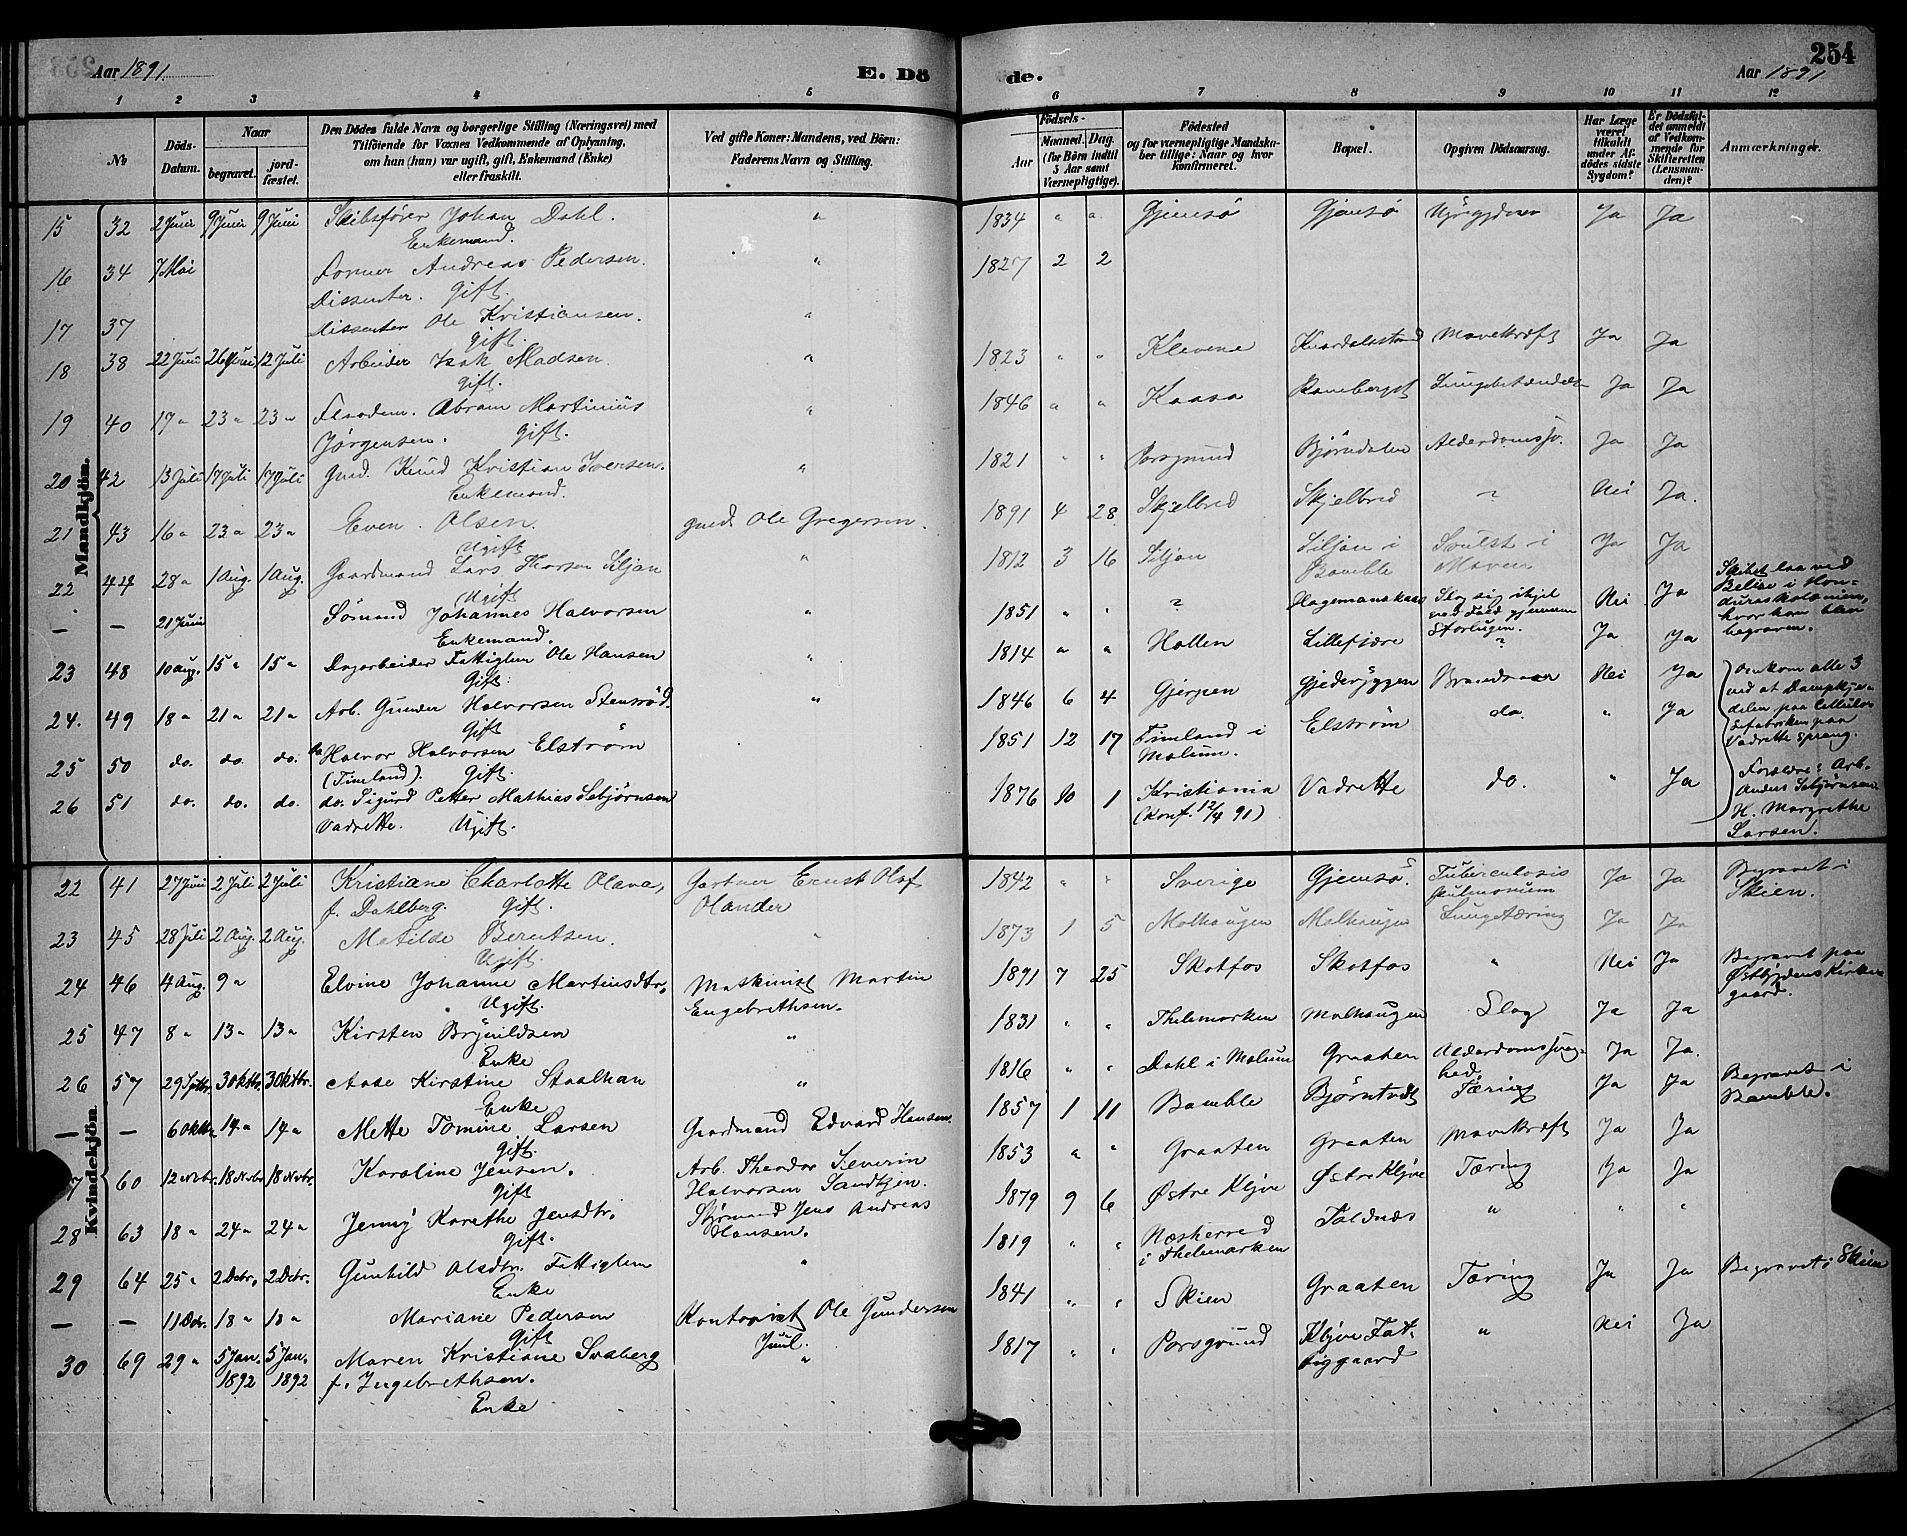 Aar 1891.
E. Dö
de.
254
Aar 1891
1 2 3 4 5 6 7 8 9 10 11 12
No
Döds-Datum.
Naar
begravet.
jordfæstet.
Den Dödes fulde Navn og borgerlige Stilling (Næringsvei) med
Tilföiende for Voxnes Vedkommende af Oplysning,
om han (hun) var ugift, gift, Enkemand (Enke)
eller fraskilt.
Ved gifte Koner: Mandens, ved Börn:
Faderens Navn og Stilling.
Födsels-
Aar
Maaned. Dag.
(for Börn indtil
5 Aar samt
Værnepligtige).
Födested
og for værnepligtige Mandska-
ber tillige: Naar og hvor
konfirmeret.
Bopæl.
Opgiven Dödsaarsag.
Har Læge
været
tilkaldt
under Af-
dödes sidste
Sygdom?
Er Dödsfal-
det anmeldt
af Vedkom-
mende for
Skifteretten
(Lensman-
den)?
Anmærkninger.
Mandkjön.
15 32 2 Juni 9 Juni 9 Juni Skibsfører Johan Dahl. " 1834 " " Gjemsö Gjemsö Ja Ja
Enkemand.
16 34 7 Mai Former Andreas Pedersen. " 1827 2 2
Dissenter. Gift.
17 37 Dissenter Ole Kristiansen. "
Gift.
18 38 22 Juni 26 Juni 12 Juli Arbeider Isak Madsen " 1823 " " Klevene Mavekræft Ja Ja
Gift.
19 40 17 " 23 " 23 " Abram Martinius " 1846 " " Kaasa Ja Ja
Jörgensen. Gift.
20 42 13 Juli 17 Juli 17 Juli Gmd. Knud Kristian Iversen. " 1821 " " Porsgrund Björndalen Alderdomssv. Ja Ja
Enkemand.
21 43 16 " 23 " 23 " Even Olsen. gmd. Ole Gregersen. 1891 4 28 Skjelbred Skjelbred ? Nei Ja.
Ugift
22 44 28 " 1 Aug. 1 Aug. Gaardmand Lars Thorsen Siljan " 1812 3 16 Siljan Siljan i Bamble Svulst i Maven Ja Ja
Ugift
— — 21 Juni Sömand Johannes Halvorsen " 1851 " " ? Slog sig ihjel ved Fald gjennem Storlugen. Nei Ja
Skibet laa ved
Belize i Hon-
duraskolonien,
hvor han blev
begraven.
Enkemand.
23 48 10 Aug. 15 " 15 " Dagarbeider Fattiglem Ole Hansen " 1814 " " Hollen Lillefjære ? Ja Ja
Gift.
24. 49 18 " 21 " 21 " Arb. Gunder Halvorsen Stensröd. " 1846 6 4 Gjerpen Gjederyggen Brandsaar Nei Ja
Gift
25 50 do. do. do. do Halvor Halvorsen Elström 1851 12 17 Fineland i Molum. Elström do. " Ja
(Fineland). Gift.
26 51 do. do. do. do. Sigurd Petter Mathias Sebjörnsen 1876 10 1 Kristiania (Konf. 12/4 91) Vadrette do. " Ja
Vadrette. Ugift.
Omkom alle 3
ved at Dampkje-
delen paa Cellulo-
sefabriken paa
Vadrette sprang.
Forældre: Arb.
Anders Sebjörnsen
H. Margrethe
Larsen.
Kvindekjön.
22 41 27 Juni 2 Juli 2 Juli Kristiane Charlotte Olava, Gartner Ernst Olof 1842 " " Sverige Gjemsö. Tuberculosis pulmonum Ja Ja Begravet i Skien.
f. Dahlberg. Gift. Olander
23 45 28 Juli 2 Aug. 2 Aug. Matilde Berntsen. " 1873 1 5 Molhaugen Molhaugen Lungetæring Ja Ja
Ugift.
24 46 4 Aug. 9 " Elvine Johanne Martinsdtr. Maskinist Martin 1891 7 25 Skotfos Skotfos " Nei Ja Begravet paa Østbygdens Kirkegaard.
Ugift. Engebrethsen.
25 47 8 " 13 " 13 " Kirsten Brynildsen " 1831 " " Thelemarken Molhaugen Slag Ja Ja
Enke
26 57 29 Septbr. 3 Oktbr. 3 Oktbr. Aase Kirstine Staalhan " 1816 " " Dahl i Molum Graaten Alderdomssvaghed. Ja Ja.
Enke
— — 6 Oktbr. 14 " 14 " Mette Tomine Larsen Gaardmand Edvard Hansen. 1857 1 11 Bamble Björntvedt Tæring Ja Ja Begravet i Bamble.
Gift.
7 60 12 Novbr. 18 Novbr. 18 Novbr. Karoline Jensen. Arb. Theodor Severin 1853 " " Graaten Graaten Mavekræft Ja Ja
Gift Halvorsen
28 63 18 " 24 " 24 " Jenny Karethe Jensdtr. Styrmand Jens Andreas 1879 9 6 Østre Klyve Østre Klyve Tæring Ja Ja
Gift. Hansen.
29 64 25 " 2 Decbr. 2 Decbr. Gunhild Olsdtr. Fattiglem " 1819 " " Næsherred i Thelemarken Faldnæs " " "
Enke
— — 11 Decbr. 18 " 18 " Mariane Pedersen Kontorist Ole Gundersen 1841 " " Skien Graaten Tæring Ja Ja Begravet i Skien
Gift Juul.
30 69 29 " 5 Jan. 1892 5 Jan. 1892 Maren Kristiane Svaberg " 1817 " " Porsgrund Klyve Fattiggaard " Nei Ja
f. Ingebrethsen.
Enke